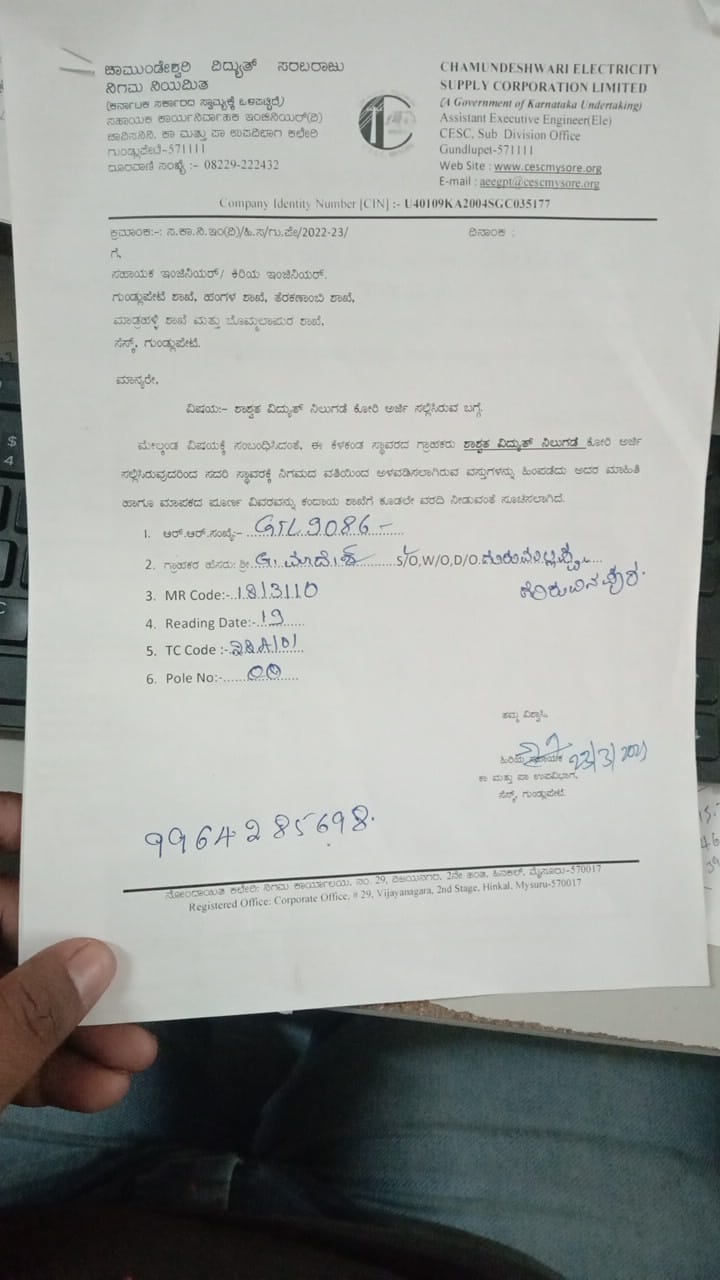 ಚಾಮುಂಡೇಶ್ವರಿ ವಿದ್ಯುತ್ ಸರಬರಾಜು
ನಿಗಮ ನಿಯಮಿತ
(ಕರ್ನಾಟಕ ಸರ್ಕಾರದ ಸ್ವಾಮ್ಯಕ್ಕೆ ಒಳಪಟ್ಟಿದೆ)
ಸಹಾಯಕ ಕಾರ್ಯನಿರ್ವಾಹಕ ಇಂಜಿನಿಯರ್(ವಿ)
ಚಾವಿಸನಿನಿ, ಕಾ ಮತ್ತು ಪಾ ಉಪವಿಭಾಗ ಕಛೇರಿ
ಗುಂಡ್ಲುಪೇಟೆ-571111
ದೂರವಾಣಿ ಸಂಖ್ಯೆ :- 08229-222432
CHAMUNDESHWARI ELECTRICITY
SUPPLY CORPORATION LIMITED
(A Government of Karnataka Undertaking)
Assistant Executive Engineer(Ele)
CESC, Sub Division Office
Gundlupet-571111
Web Site : www.cescmysore.org
E-mail : aeegpt@cescmysore.org
Company Identity Number [CIN] :- U40109KA2004SGC035177
ಕ್ರಮಾಂಕ:-: ಸ.ಕಾ.ನಿ.ಇಂ(ವಿ)/ಹಿ.ಸ/ಗು.ಪೇ/2022-23/ ದಿನಾಂಕ :
ಗೆ,
ಸಹಾಯಕ ಇಂಜಿನಿಯರ್/ ಕಿರಿಯ ಇಂಜಿನಿಯರ್.
ಗುಂಡ್ಲುಪೇಟೆ ಶಾಖೆ, ಹಂಗಳ ಶಾಖೆ, ತೆರಕಣಾಂಬಿ ಶಾಖೆ,
ಮಾಡ್ರಹಳ್ಳಿ ಶಾಖೆ ಮತ್ತು ಬೊಮ್ಮಲಾಪುರ ಶಾಖೆ,
ಸೆಸ್ಕ್, ಗುಂಡ್ಲುಪೇಟೆ.
ಮಾನ್ಯರೇ,
ವಿಷಯ:- ಶಾಶ್ವತ ವಿದ್ಯುತ್ ನಿಲುಗಡೆ ಕೋರಿ ಅರ್ಜಿ ಸಲ್ಲಿಸಿರುವ ಬಗ್ಗೆ.
ಮೇಲ್ಕಂಡ ವಿಷಯಕ್ಕೆ ಸಂಬಂಧಿಸಿದಂತೆ, ಈ ಕೆಳಕಂಡ ಸ್ಥಾವರದ ಗ್ರಾಹಕರು ಶಾಶ್ವತ ವಿದ್ಯುತ್ ನಿಲುಗಡೆ ಕೋರಿ ಅರ್ಜಿ
ಸಲ್ಲಿಸಿರುವುದರಿಂದ ಸದರಿ ಸ್ಥಾವರಕ್ಕೆ ನಿಗಮದ ವತಿಯಿಂದ ಅಳವಡಿಸಲಾಗಿರುವ ವಸ್ತುಗಳನ್ನು ಹಿಂಪಡೆದು ಅದರ ಮಾಹಿತಿ
ಹಾಗೂ ಮಾಪಕದ ಪೂರ್ಣ ವಿವರವನ್ನು ಕಂದಾಯ ಶಾಖೆಗೆ ಕೂಡಲೇ ವರದಿ ನೀಡುವಂತೆ ಸೂಚಿಸಲಾಗಿದೆ.
1. ಆರ್.ಆರ್.ಸಂಖ್ಯೆ:- GTL9086-
2. ಗ್ರಾಹಕರ ಹೆಸರು: ಶ್ರೀ. G. ಮಾದೇಶ್ S/O,W/O,D/O
3. MR Code:- 1813110
4. Reading Date:- 19
5. TC Code :-
6. Pole No:- 00
ತಮ್ಮ ವಿಶ್ವಾಸಿ,
ಹಿರಿಯ ಸಹಾಯಕ 23/3/2023
ಕಾ ಮತ್ತು ಪಾ ಉಪವಿಭಾಗ,
ಸೆಸ್ಕ್, ಗುಂಡ್ಲುಪೇಟೆ.
9964285698.
ನೋಂದಾಯಿತ ಕಛೇರಿ: ನಿಗಮ ಕಾರ್ಯಾಲಯ, ನಂ. 29, ವಿಜಯನಗರ, 2ನೇ ಹಂತ, ಹಿನಕಲ್, ಮೈಸೂರು-570017
Registered Office: Corporate Office, # 29, Vijayanagara, 2nd Stage, Hinkal, Mysuru-570017